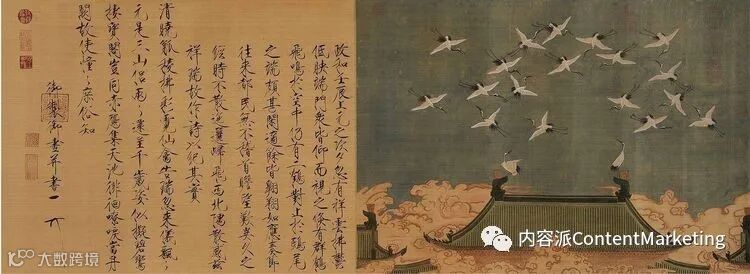 政和壬辰上元之次夕忽有祥雲拂鬱
低映端門眾皆仰而視之倏有群鶴
飛鳴於空中仍有二鶴對止於鴟尾
之端頗甚閒適餘皆翱翔如應奏節
往來都民無不稽首瞻望歎異久之
經時不散迤邐歸飛西北隅散感茲
祥瑞故作詩以紀其實
清曉觚稜拂彩霓仙禽告瑞忽來儀飄〻
元是三山侶兩〻還呈千歲姿似擬碧鸞
棲寶閣豈同赤雁集天池徘徊嘹唳當丹
闕故使憧〻庶俗知
御製御畫并書
大数跨境
内容派ContentMarketing